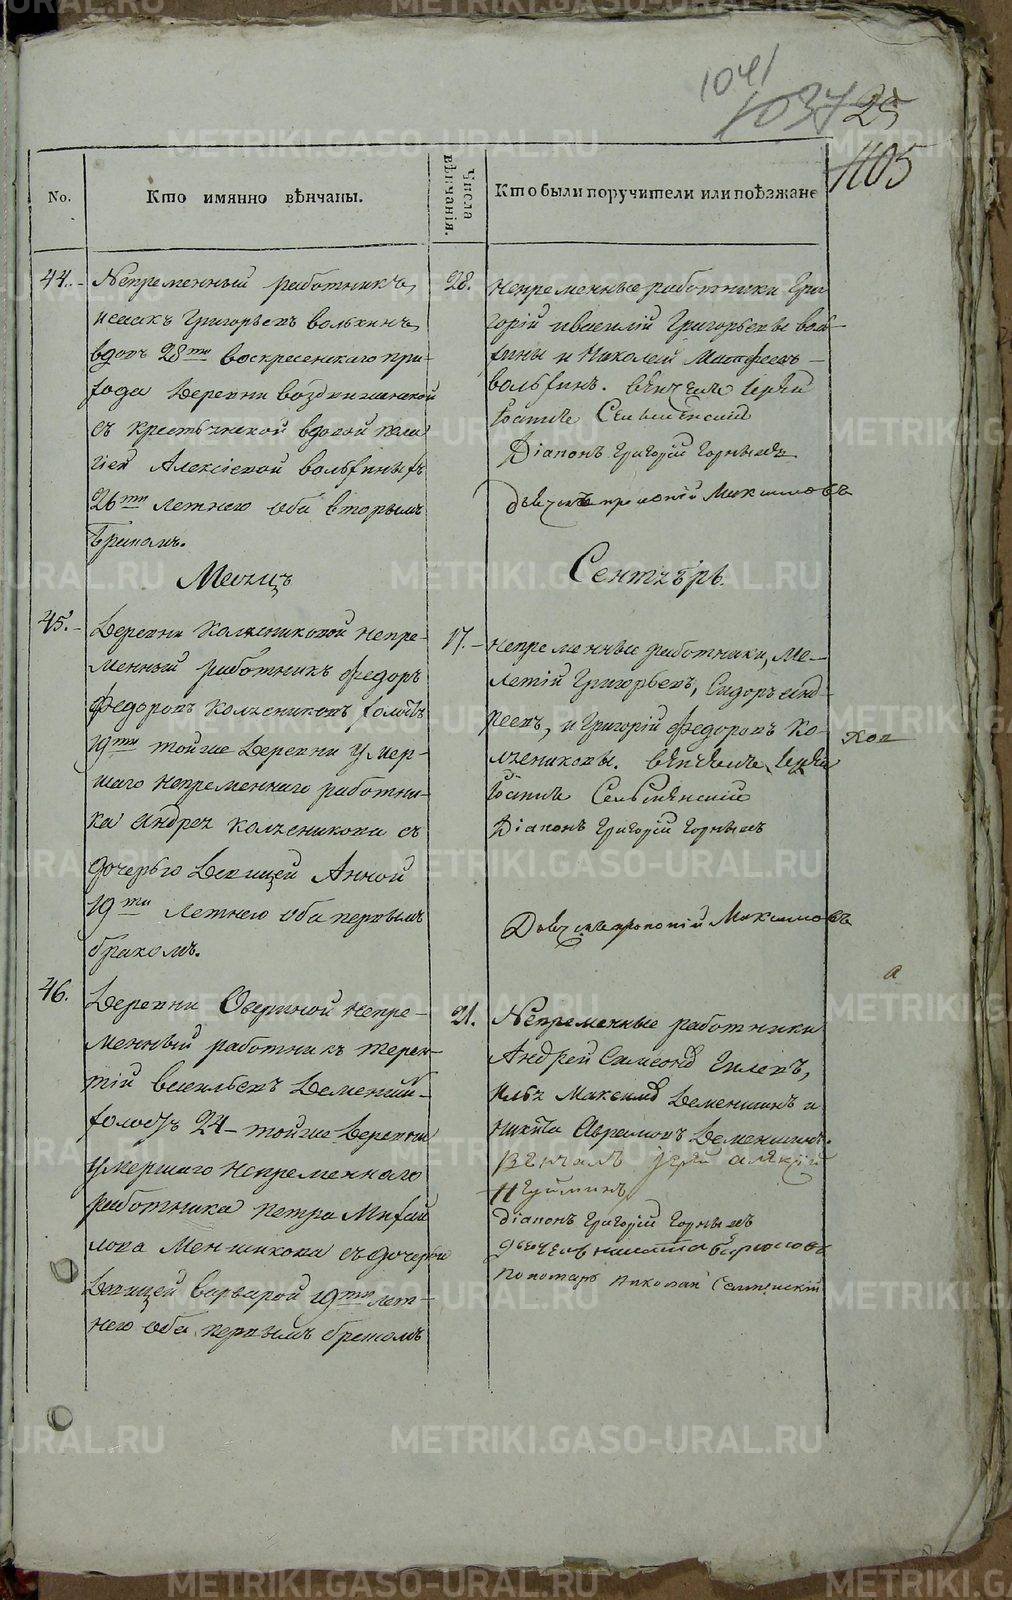 1041
1037 25
1105
No.
Кто имянно вѣнчаны.
Числа вѣнчанія.
Кто были поручители или поѣзжане
44.
Непременный работникъ
исаакъ Григорьевъ волхинъ
вдовъ 28ми воскресенскаго при-
хода Деревни воздвиженской
съ крестьянской вдовой пела
гіей Алексіевой
26ти летнею оба вторымъ
бракомъ.
28.
непременные работники Гри
горій ивасилій Григорьевы вол-
хины и Николай Матфеевъ
волхинъ. вѣнчалъ Іерей
Іоаннъ Сельменскій
Діаконъ Григорій Горныхъ
дьячекъ прокопій Максимовъ
Месяцъ
Сентябрь.
45.
Деревни Колясниковой непре-
менный работникъ Федоръ
Федоровъ Колясниковъ холостъ
19ти тойже Деревни умер-
шаго непременнаго работни-
ка андрея колясникова съ
дочерью Девицей Анной
19ти летнею оба первымъ
бракомъ.
17.
непременные работники, Ме-
летій Григорьевъ, Сидоръ анд-
реевъ, и Григорій Федоровъ Ко-
лясниковы. вѣнчалъ Іерей
Іоаннъ Сельменскій
Діаконъ Григорій Горныхъ
Дьячекъ прокопій Максимовъ
46.
Деревни Овериной непре-
менный работникъ терен-
тій васильевъ Деменши-
холостъ 24 тойже Деревни
умершаго непременнаго
работника петра Михай
лова Меншикова съ дочерью
Девицей варварой 19ти лет-
нею оба первымъ бракомъ
21.
Непременные работники
Андрей Симеоновъ
Илья Максимовъ Деменшинъ и
никита Аврамовъ Деменшинъ.
Вѣнчалъ іерей алексій
діаконъ Григорій Горныхъ
дьячекъ никита
пономарь николай Селменскій